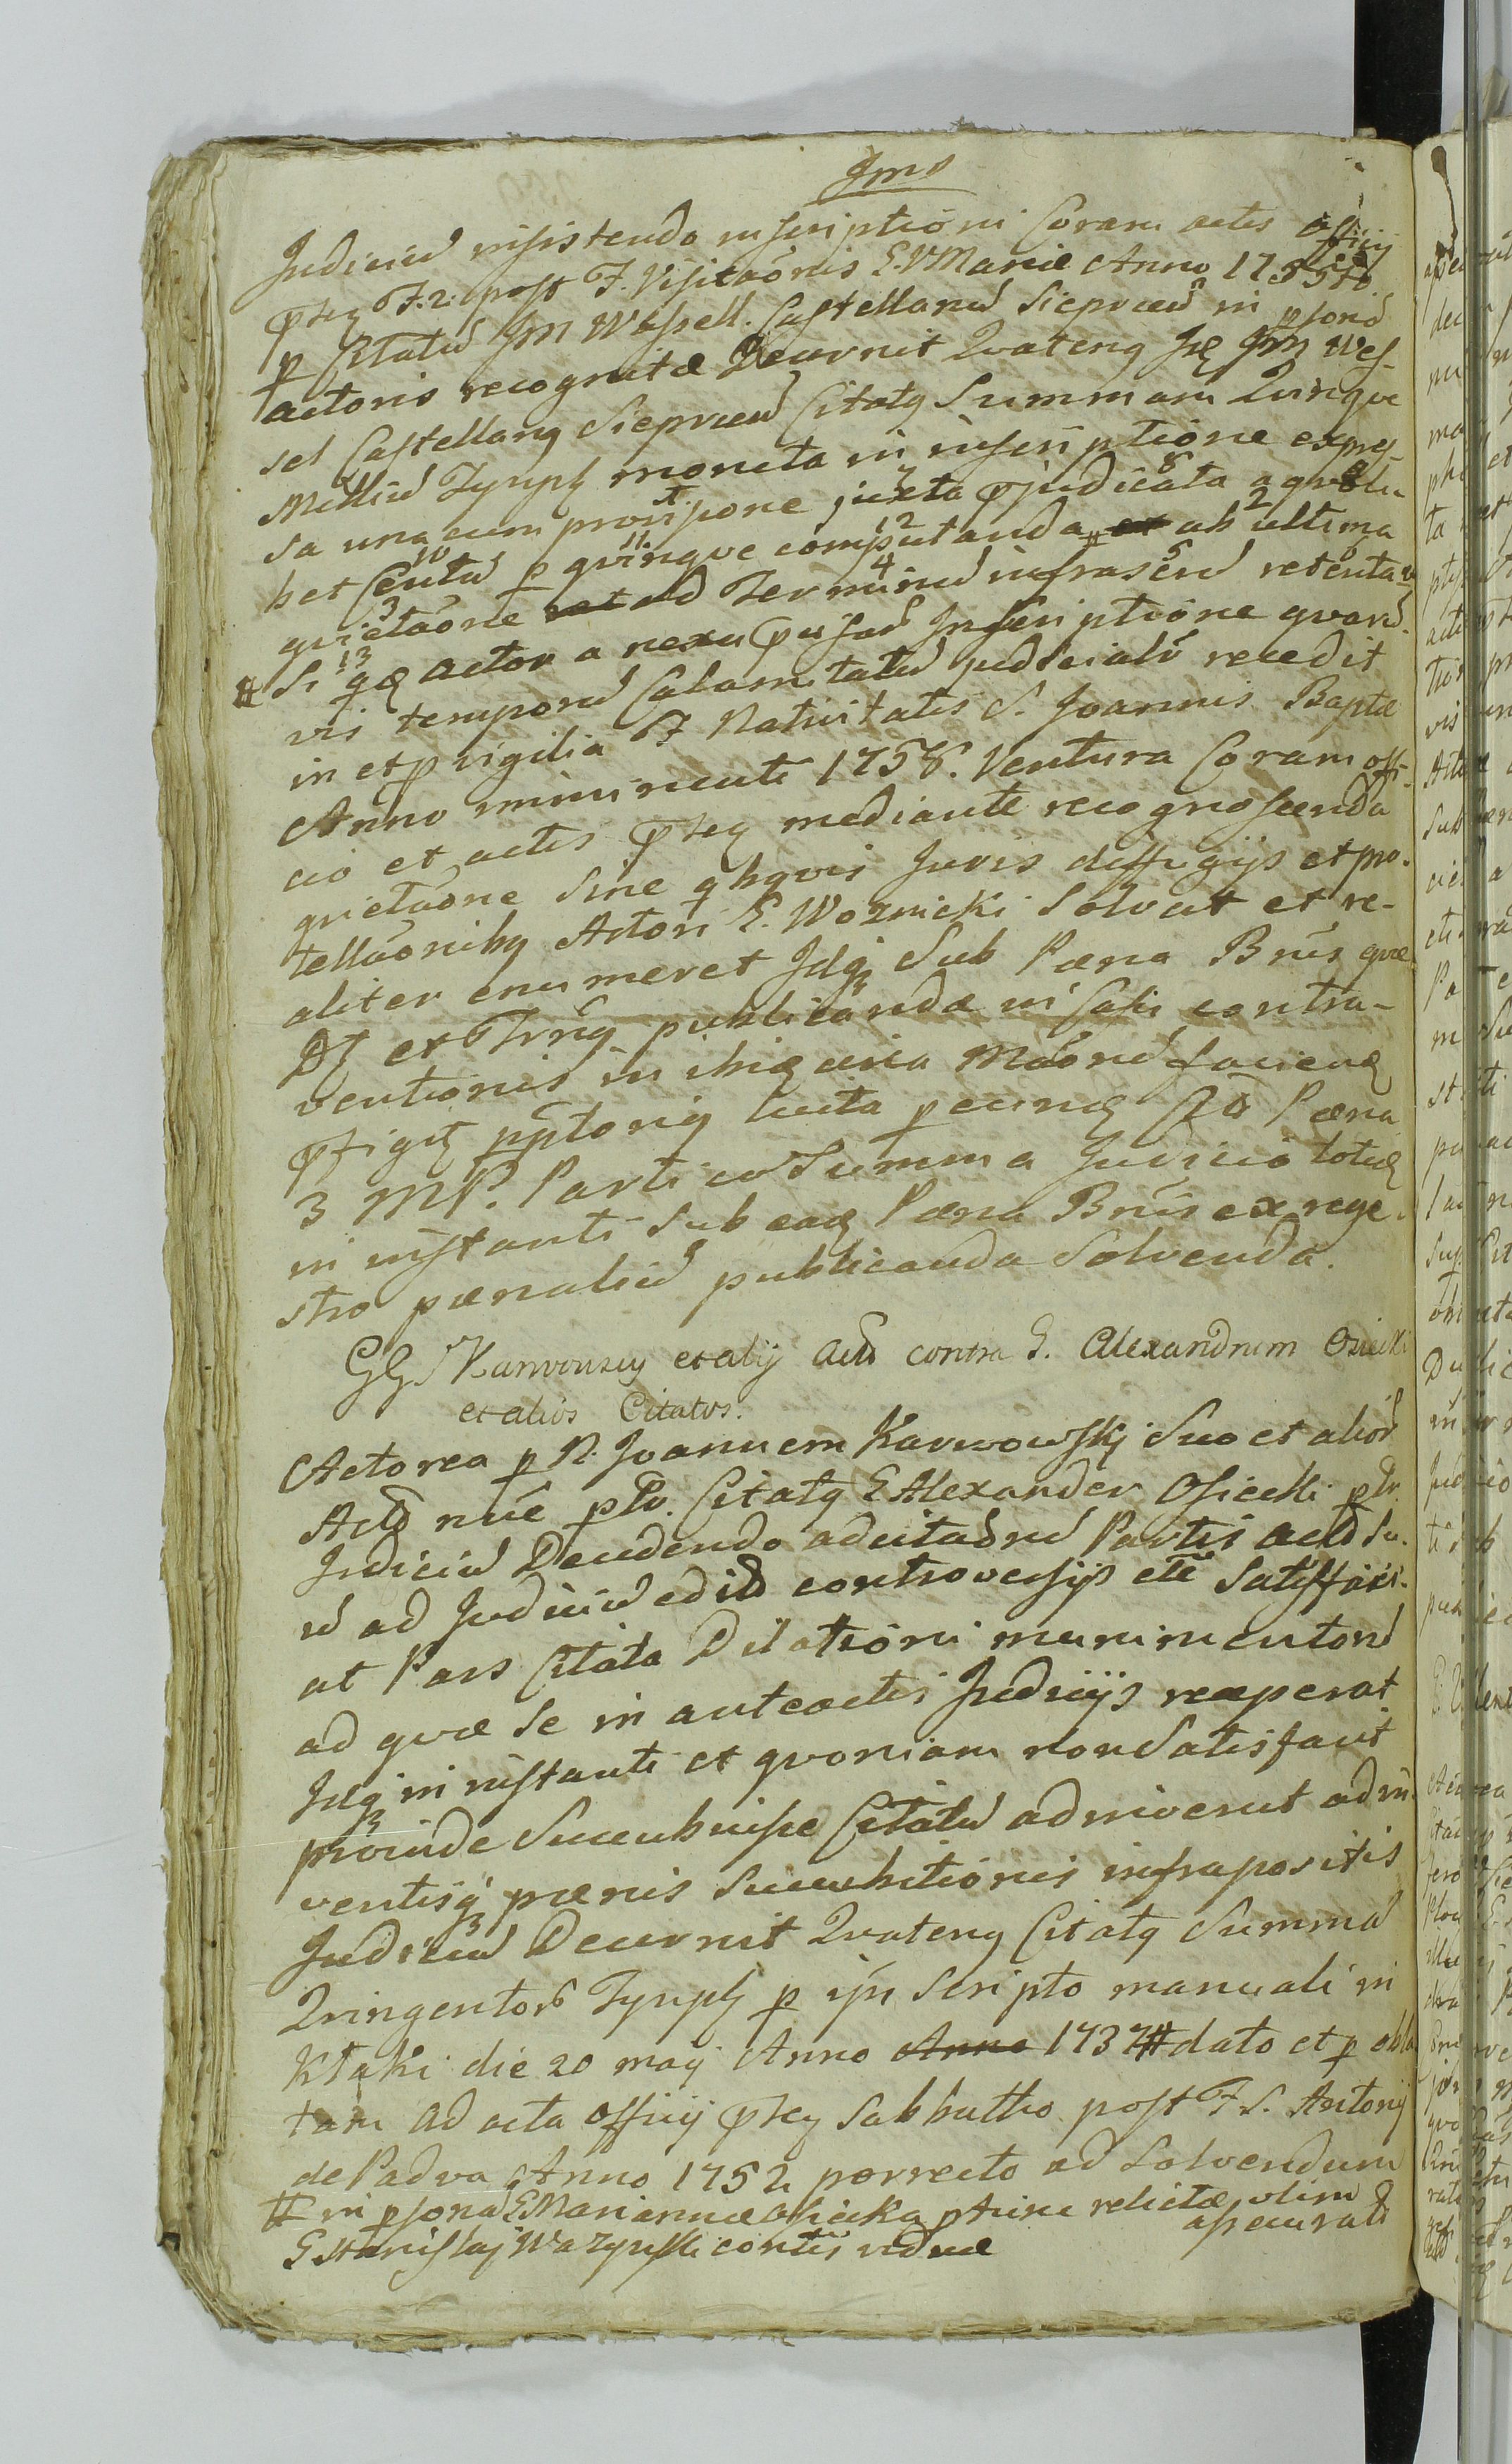 Jms
Judiciũ insistendo inscriptioni Coram actis officij
p̃tey F. 2. post F. Visitãonis E. V Mariæ Anno 1755to
p Citatũ JM Wessell. Castellanũ Siepræñ in psonã
actoris recognitæ Decernit Qvateng JM Wes-
sel Castellang Siepræñ Citatg Summam Qvinqve
Milliũ Tynph moneta in inscriptione expres-
sa una cum provisione juxta p̃judicata a qvoli-
bet Centũ p qvinqve computanda # ab ultima
qvietãone ad Terminũ infrascrũ retenta
# Si qđ actor a nexu p̃missaũ Inscriptione qvavũ
vis temporũ Calamitatũ judiciali recedit
in et p vigilia F Nativitatis S. Joannis Baptæ
Anno imminenti 1758. Ventura Coram offi-
cio et actis p̃tey mediante recognoscenda
qvietãone Sine qbqvis Juris diffugijs et pro-
tellãonibg Actori E. Woznicki Solvat et re-
aliter enumeret Idq3 Sub Pæna Bnis qvæ
publicandæ in casu contra-
ventionis in
p̃figit pptorig lucta pecunię Pæna
3 MP. Parti cũ Summa Judicio totię
in instanti Sub eadę Pæna Bnis ex rege-
stro pænaliũ publicanda Solvenda.
GG. Karwowscy et alij Actõ contra G. Alexandrum Osiecki
et alios Citatos.
Actorea p R. Joannem Karwowskj Suo et alioũ
Actõ nõie ptr. Citatg E Alexander Osiecki ptr
Judiciũ Decidendo ad citãonũ Partis actõ su-
ũ ad Judiciũ editõ controversijs etc Satisfaci-
at Pars Citata Dilationi munimentorũ
ad qvæ Se in anteactis Judicijs receperat
Idq3 in instanti et qvoniam non Satisfacit
proinde Succubuisse Citatũ adinvenit adin-
ventisq3 pænis Succubitionis infrapositis
Judiciũ Decernit Qvateng Citatg Summã
Qvingentorũ Tynph p ipũ Scripto manuali in
Ktaki die 20 maij Anno Anno 1737 # dato et p obla
tam ad acta officij p̃tey Sabbatho post F S. Antonij
de Padva Anno 1752 porrecto ad Solvendum
# in psona E Mariannæ Osiecka ptũnc relictæ olim assecurati
G Stanislaj Wazynski contis viduæ